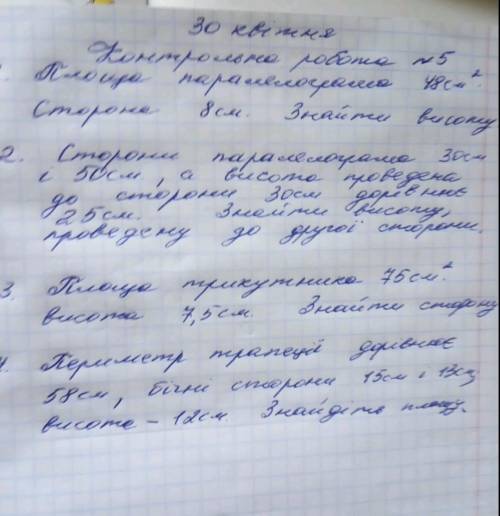 30 квітня
Контрольна робота №5
Площа паралелограма 48см².
Сторона 8см. Знайти висоту
2. Сторони паралелограма 30см
і 50см, а висота проведена
до сторони 30см дорівнює
25см. Знайти висоту,
проведену до другої сторони.
3. Площа трикутника 75см².
висота 7,5см. Знайти сторону
4. Периметр трапеції дорівнює
58см, бічні сторони 15см і 13см,
висота - 12см. Знайдіть площу.